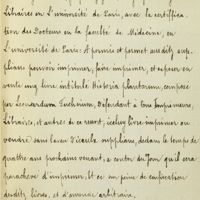 Libraires en L'université de Paris, avec la certiffica-
tion des Docteurs en la faculté de Médecine, en
L'université de Paris: et permis et permet ausdits sup-
plians pouvoir imprimer, faire imprimer, et exposer en
vente ung livre intitulé Historia plantarum, composé
par Leonardum Fuchsium, Défendant à tous Imprimeurs,
Libraires, et autres de ce ressort, icelluy livre imprimer ou
vendre sans l'aveu d'iceulx supplians, dedans le temps de
quatre ans prochains venant, à conter du jour qu'il sera
parachevé d'imprimer, et ce sur peine de confiscation
desdits livres, et d'amende arbitraire.